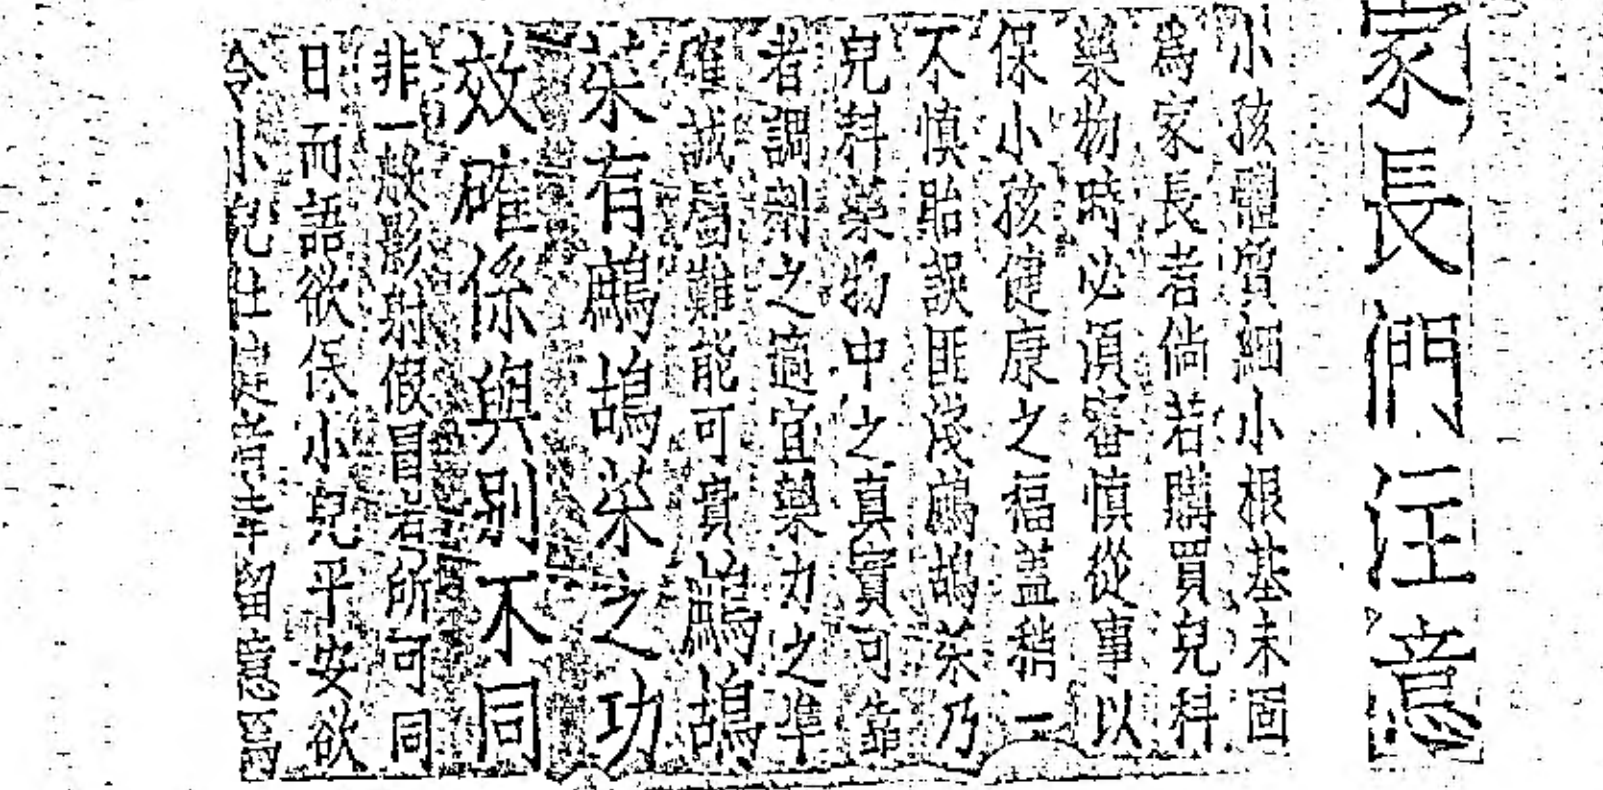 家長們注意
小孩體質細小根基未固
為家長者倘若購買兒科
藥物時必須審慎從事以
保小孩健康之福盖稍一
不慎貽誤匪淺鷓鴣菜乃
兒科藥物中之真實可靠
者調劑之適宜藥力之準
確誠屬難能可貴鷓鴣
菜有鷓鴣菜之功
效確係與別不同
非一般影射假冒者所可同
日而語欲保小兒平安欲
令小兒壯健者幸留意焉